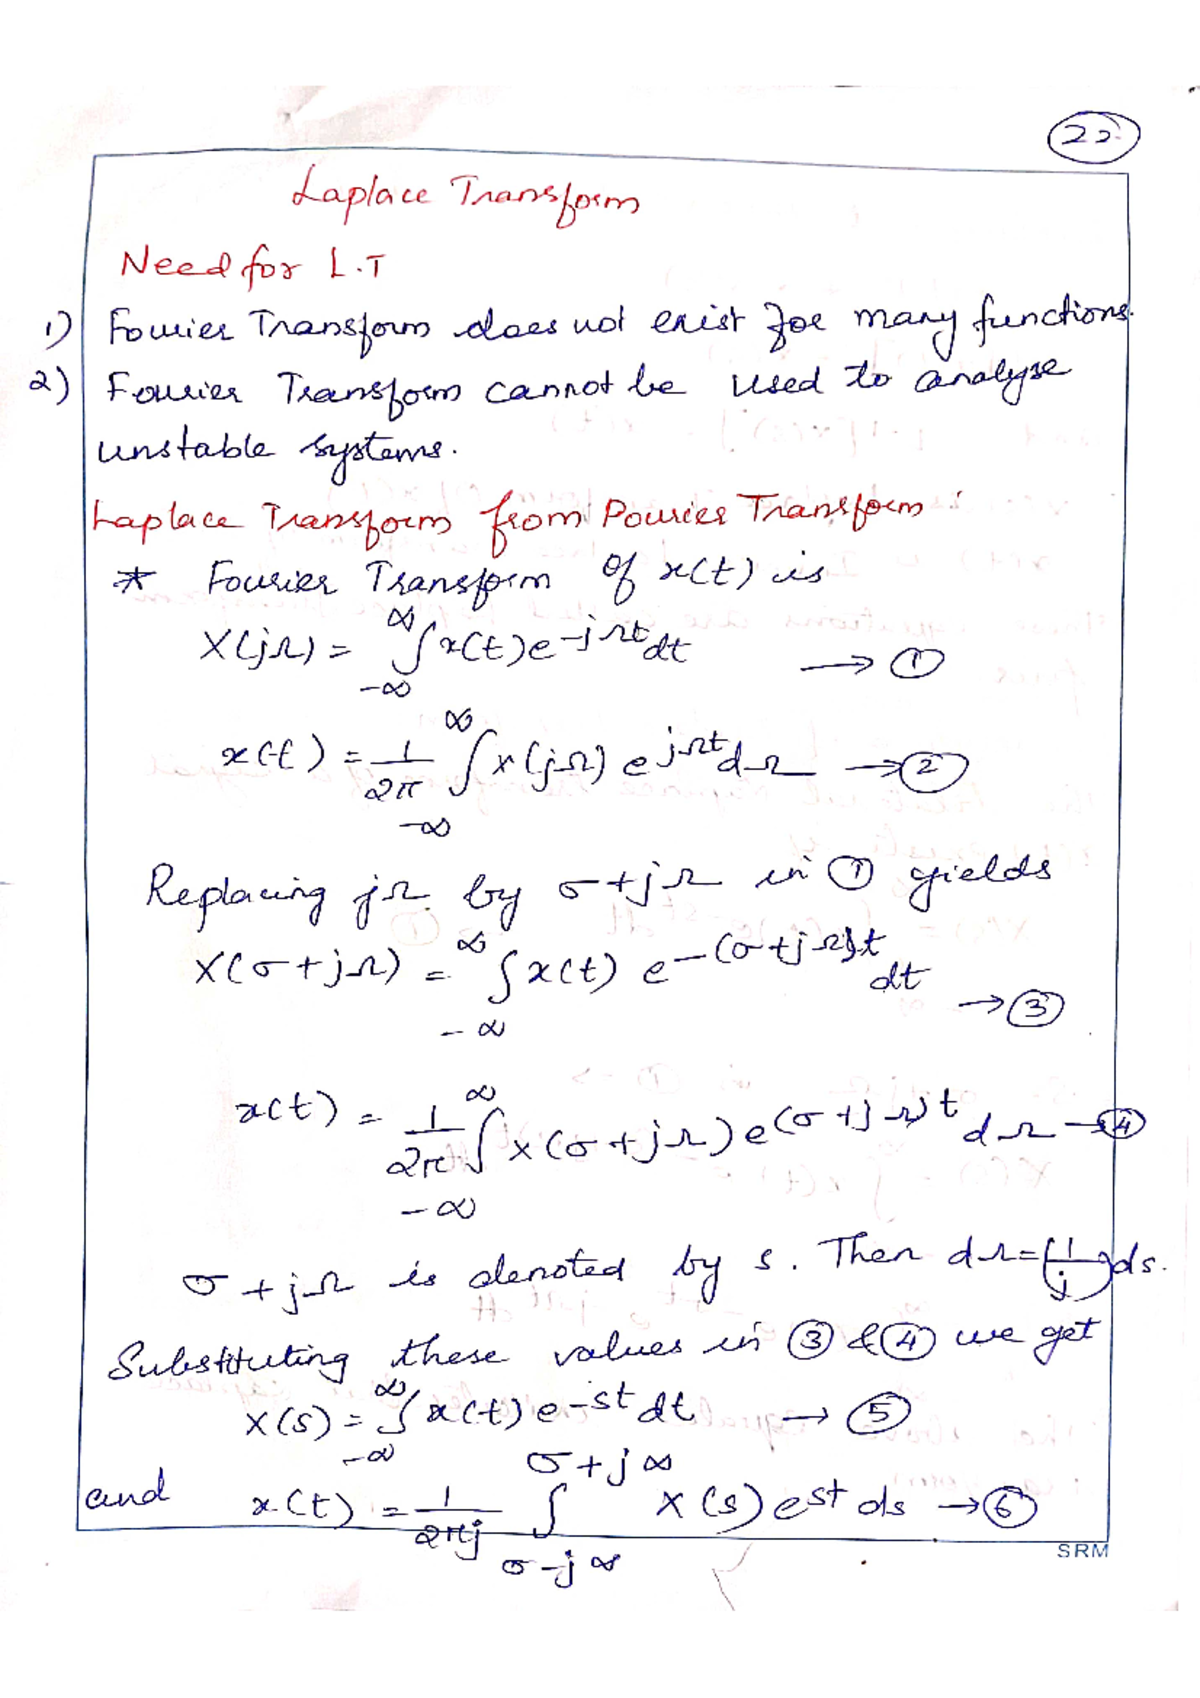 22
Laplace Transform
Need for L.T
1) Fourier Transform does not exist for many functions.
2) Fourier Transform cannot be used to analyse
unstable systems.
Laplace Transform from Fourier Transform :
* Fourier Transform of x(t) is
X(jΩ) = ∫_{-∞}^{∞} x(t) e^{-jΩt} dt → ①
x(t) = 1/2π ∫_{-∞}^{∞} X(jΩ) e^{jΩt} dΩ → ②
Replacing jΩ by σ+jΩ in ① yields
X(σ+jΩ) = ∫_{-∞}^{∞} x(t) e^{-(σ+jΩ)t} dt → ③
x(t) = 1/2π ∫_{-∞}^{∞} X(σ+jΩ) e^{(σ+jΩ)t} dΩ → ④
σ+jΩ is denoted by s. Then dΩ = (1/j) ds.
Substituting these values in ③ & ④ we get
X(s) = ∫_{-∞}^{∞} x(t) e^{-st} dt → ⑤
and x(t) = 1/2πj ∫_{σ-j∞}^{σ+j∞} X(s) e^{st} ds → ⑥
SRM